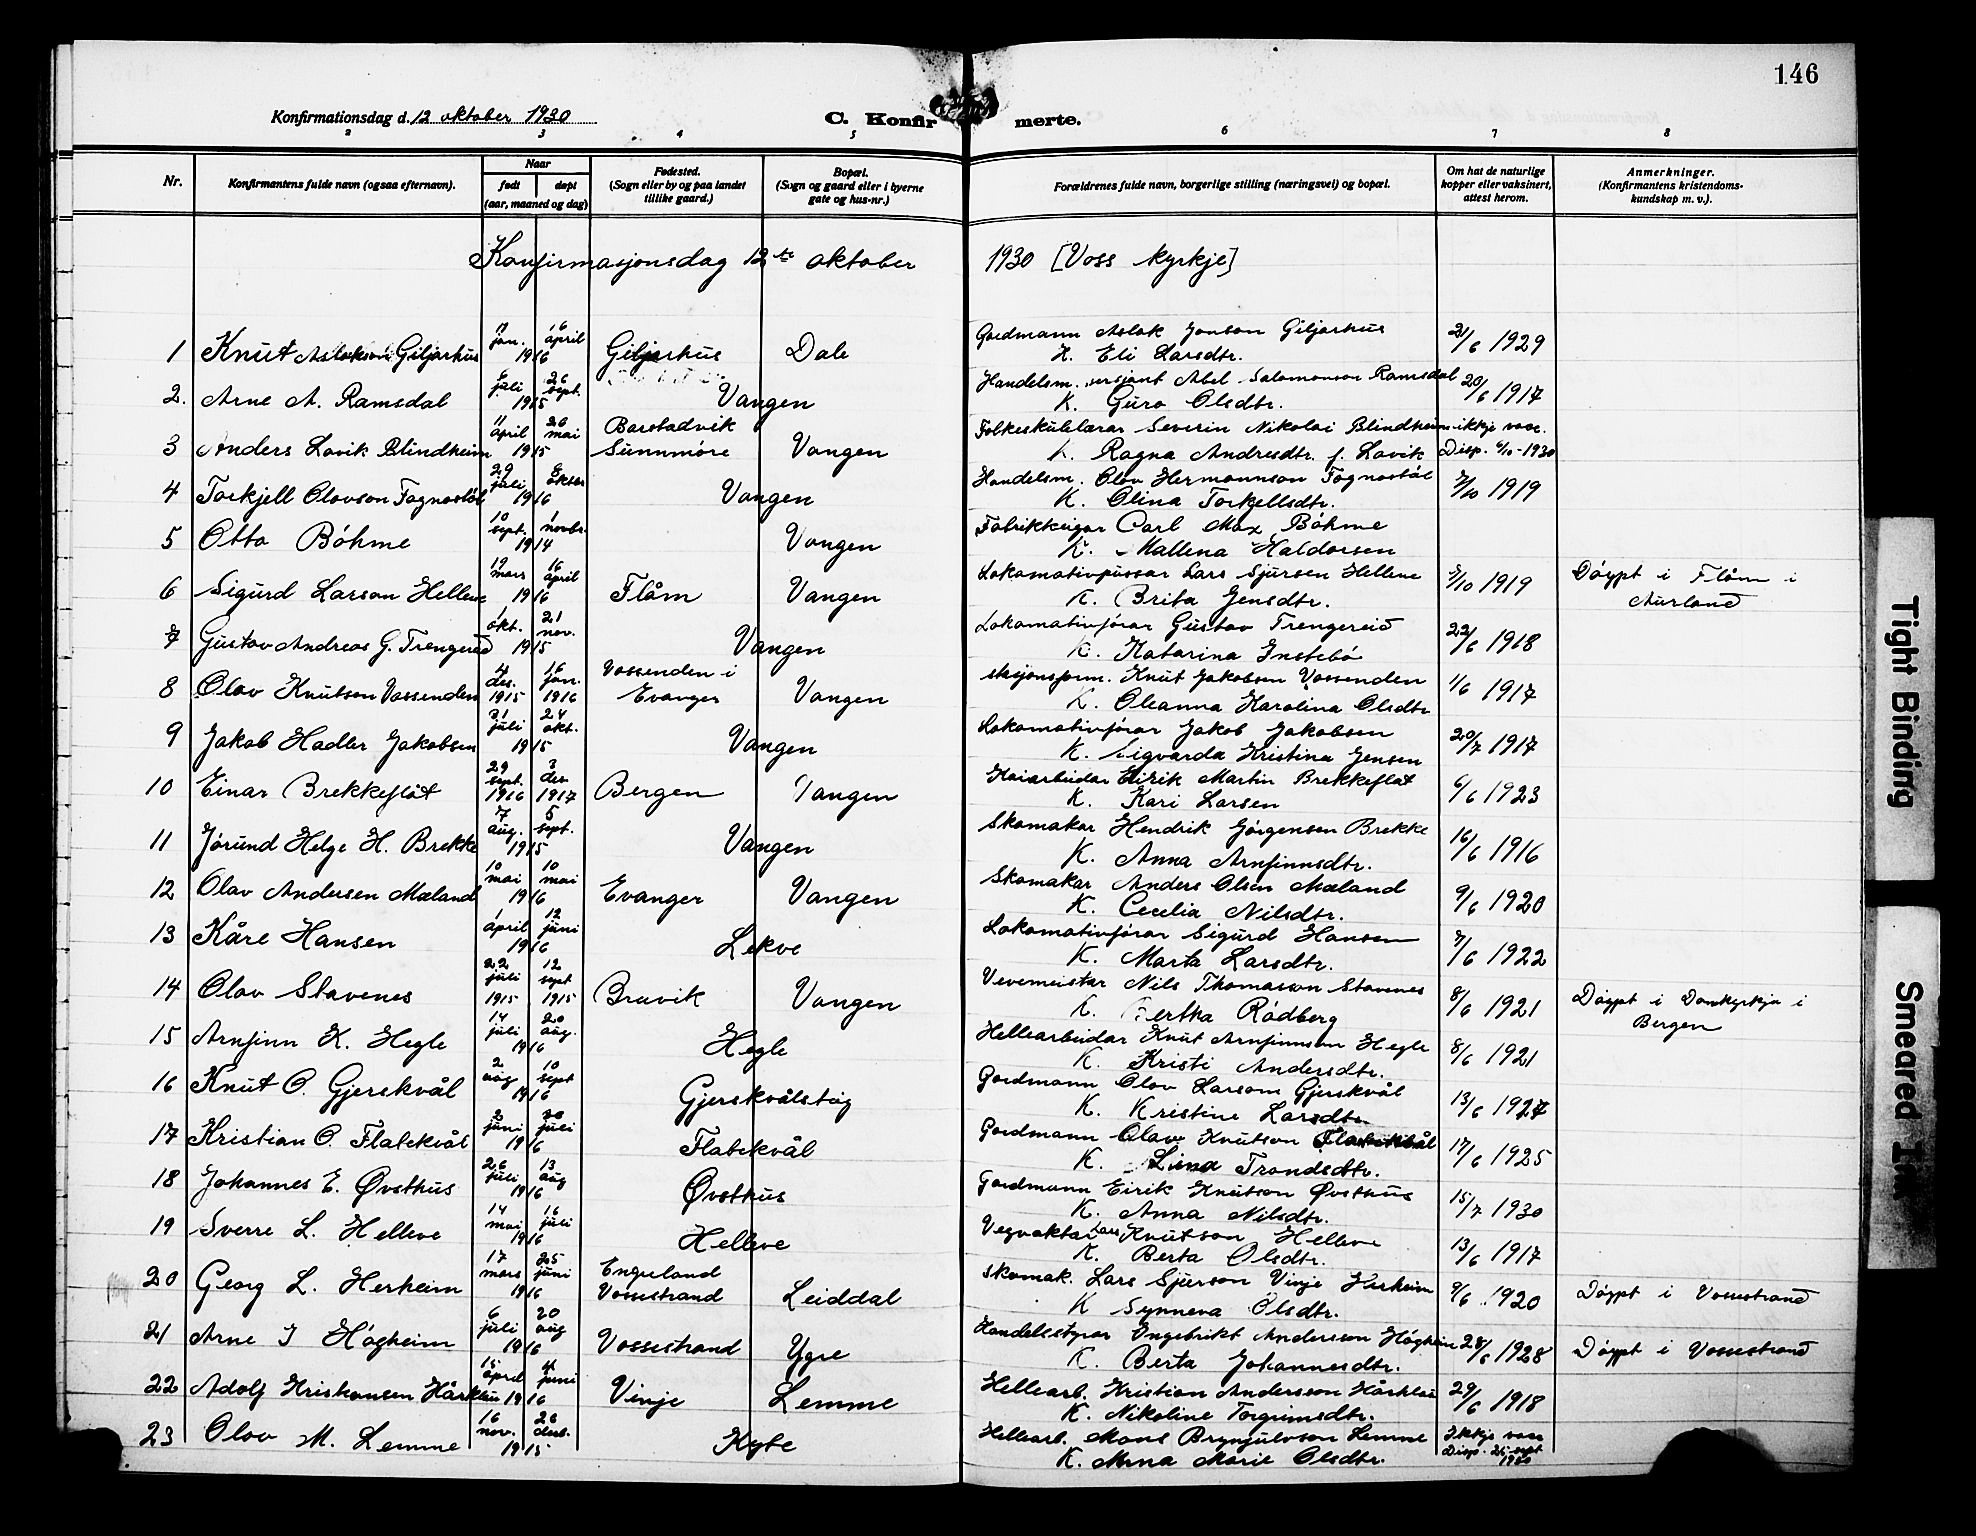 146
Konfirmationsdag d. 12 oktober 1930
C. Konfirmerte.
2 3 4 5 6 7 8
Nr.
Konfirmantens fulde navn (ogsaa efternavn).
Naar
født døpt
(aar, maaned og dag)
Fødested.
(Sogn eller by og paa landet
tillike gaard.)
Bopæl.
(Sogn og gaard eller i byerne
gate og hus-nr.)
Forældrenes fulde navn, borgerlige stilling (næringsvei) og bopæl.
Om hat de naturlige
kopper eller vaksinert,
attest herom.
Anmerkninger.
(Konfirmantens kristendoms-
kundskap m. v.).
Konfirmasjonsdag 12te oktober 1930 [Voss kyrkje]
1 Knut Aslakson Giljarhus 17 jan. 16 april 1916 Giljarhus Dale Gardmann Aslak Jonson Giljarhus 21/6 1929
K. Eli Larsdtr.
2. Arne A. Ramsdal 6 juli 26 sept. 1915 Vangen Handelsm. Abel Salomonson Ramsdal 20/6 1917
K. Guro Olsdtr.
3 Anders Lavik Blindheim 11 april 20 mai 1915 Barstadvik Sunnmöre Vangen Folkeskulelærar Severin Nikolai Blindheim ikkje vase.
K. Ragna Andresdtr. f. Lavik Disp. 6/10-1930
4 Torkjell Olavson Fagnastøl 29 juli 8 oktbr 1916 Vangen Handelsm. Olav Hermannson Fagnastøl 7/10 1919
K. Olina Torkellsdtr.
5 Otto Böhme 10 sept. 1 novbr. 1914 Vangen Fabrikkeigar Carl Max Böhme
K. Mallena Haldorsen
6 Sigurd Larson Hellene 12 mars 16 april 1916 Flåm Vangen Lokomativpussar Lars Sjursen Hellene 7/10 1919 Döypt i Flåm i
K. Brita Jensdtr. Aurland
7 Gustav Andreas G. Trengereid 1 okt. 21 nov. 1915 Vangen Lokomativförar Gustav Trengereid 22/6 1918
K. Katarina Instebö
8 Olav Knutson Vassenden 4 des. 1915 16 jan. 1916 Vossenden i Evanger Vangen Knut Jakobson Vossenden 1/6 1917
K. Oleanna Karolina Olsdtr
9 Jakob Hadler Jakobsen 31 juli 24 okt. 1915 Vangen Lokomativförar Jakob Jakobsen 20/7 1917
K. Sigvarda Kristina Jensen
10 Einar Brekkeflåt 29 sept. 1916 3 des 1917 Bergen Vangen Kaiarbeidar Eirik Martin Brekkeflåt 6/6 1923
K. Kari Larsen
11 Jörund Helge H. Brekke 7 aug. 5 sept. 1915 Vangen Skomakar Hendrik Jörgensen Brekke 16/6 1916
K. Anna Arnfinnsdtr.
12 Olav Andersen Mæland 10 mai 10 mai 1916 Evanger Vangen Skomakar Anders Olsen Mæland 9/6 1920
K. Cecelia Nilsdtr.
13 Kåre Hansen 1 april 12 juni 1916 Lekve Lokomativförar Sigurd Hansen 7/6 1922
K. Marta Larsdtr.
14 Olav Stavenes 22 juli 1915 12 sept 1915 Bruvik Vangen Vevemeistar Nils Thomasson Stavenes 8/6 1921 Döypt i Domkyrkja i
K. Bertha Rödberg Bergen
15 Arnfinn K. Hegle 14 juli 20 aug. 1916 Hegle Hellearbeidar Knut Arnfinnson Hegle 8/6 1921
K. Kristi Andersdtr.
16 Knut O. Gjerskvål 2 aug 10 sept 1916 Gjerskvålstøg Gardmann Olav Larson Gjerskvål 13/6 1927
K. Kristine Larsdtr.
17 Kristian O. Flatekvål 2 juni 30 juli 1916 Flatekvål Gardmann Olav Knutson Flatekvål 17/6 1925
K. Trondsdtr.
18 Johannes E. Øvsthus 26 juli 13 aug 1916 Øvsthus Gardmann Eirik Knutson Øvsthus 15/7 1930
K. Anna Nilsdtr.
19 Sverre L. Helleve 14 mai 16 juli 1916 Helleve Vegvaktar Lars Knutson Helleve 13/6 1917
K. Berta Olsdtr.
20 Georg L. Herheim 17 mars 25 juni 1916 Engeland Vossestrand Leiddal Skomak. Lars Sjurson Vinje Herheim 9/6 1920 Döypt i Vossestrand
K Synneva Olsdtr.
21 Arne I Högheim 6 juli 20 aug 1916 Vossestrand Ygre Handelsstyrar Ingebrikt Andersson Högheim 28/6 1928 Döypt i Vossestrand
K. Berta Johannesdtr.
22 Adolf Kristiansen Hårklau 15 april 4 juni 1916 Vinje Lemme Hellearb. Kristian Andersson Hårklau 29/6 1918
K. Nikoline Torgrimsdtr.
23 Olav M. Lemme 16 nov. 26 desb. 1915 Kyte Hellearb. Mons Brynjulvson Lemme Ikkje vase
K. Anna Marie Olsdtr. Disp. 25 sept 1930
Tight Binding
Smeared Ink